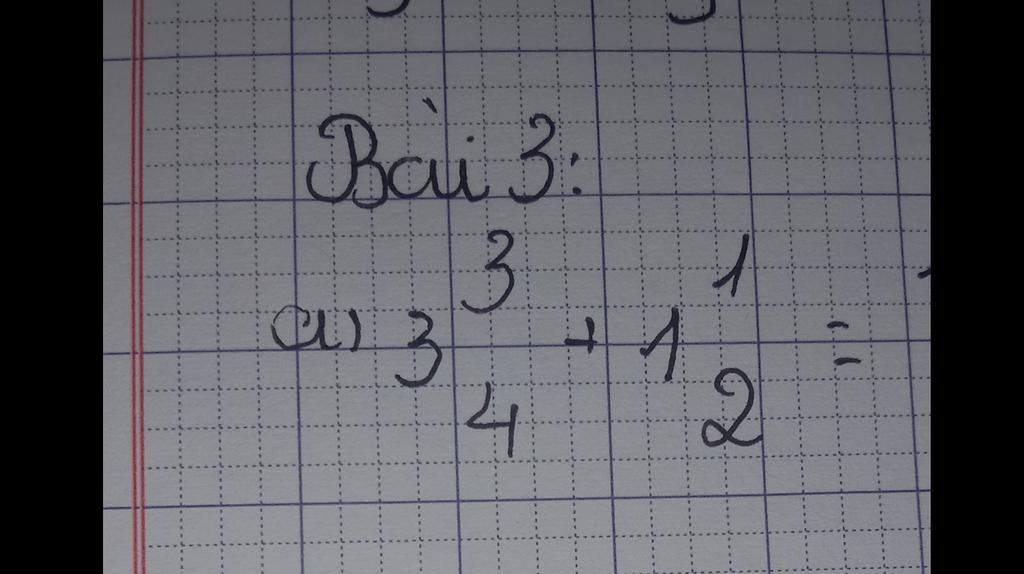 Bài 3:
a) 3 3/4 + 1 1/2 =